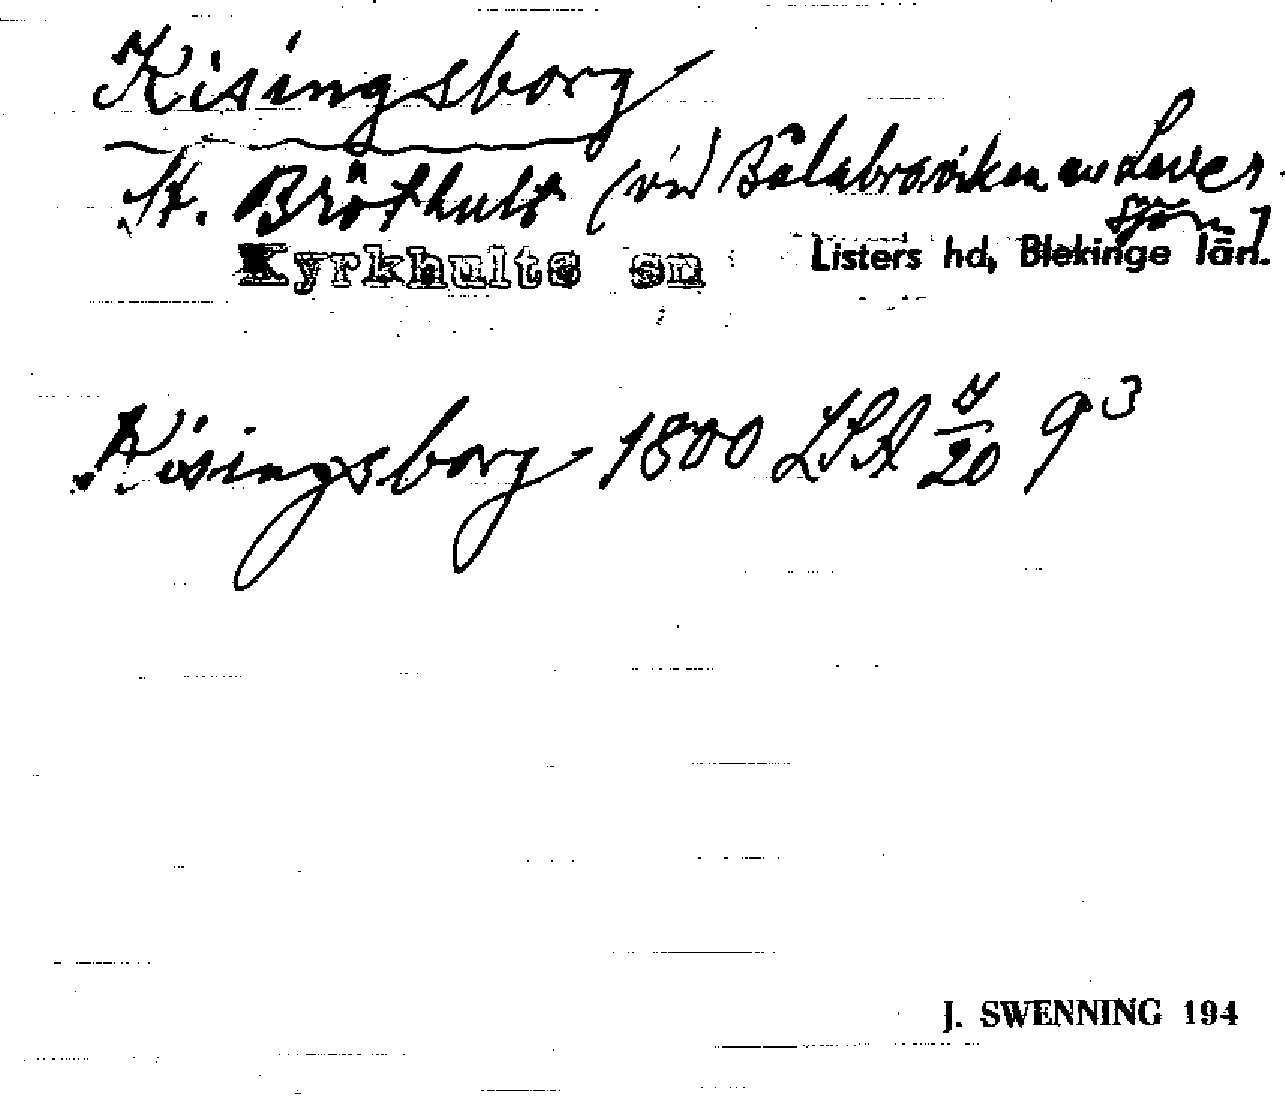 Kisingsborg
St. Bröthult (vid Bålabroviken av Lovers-
sjön)
Kyrkhults sn Listers hd, Blekinge län.
Kisingsborg 1800 LSA 20 9³
J. SWENNING 194